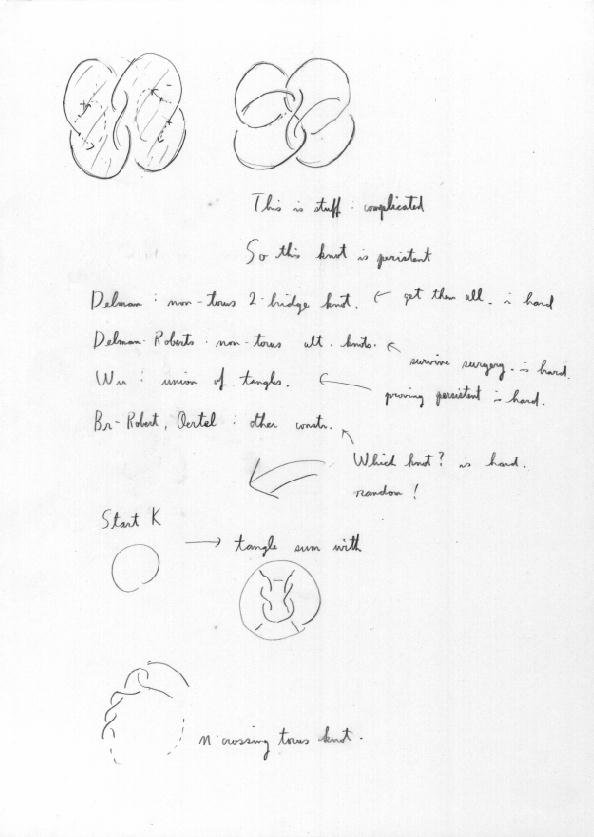 This is stuff : complicated
So this knot is peristent
Delman : non-torus 2-bridge knot. ← get them all. is hard
Delman-Roberts. non-torus alt. knots.
survive surgery. is hard.
Wu : union of tangles.
proving peristent is hard.
Br-Robert, Oertel : other constr.
Which knot? is hard.
random!
Start K
→ tangle sum with
n crossing torus knot.